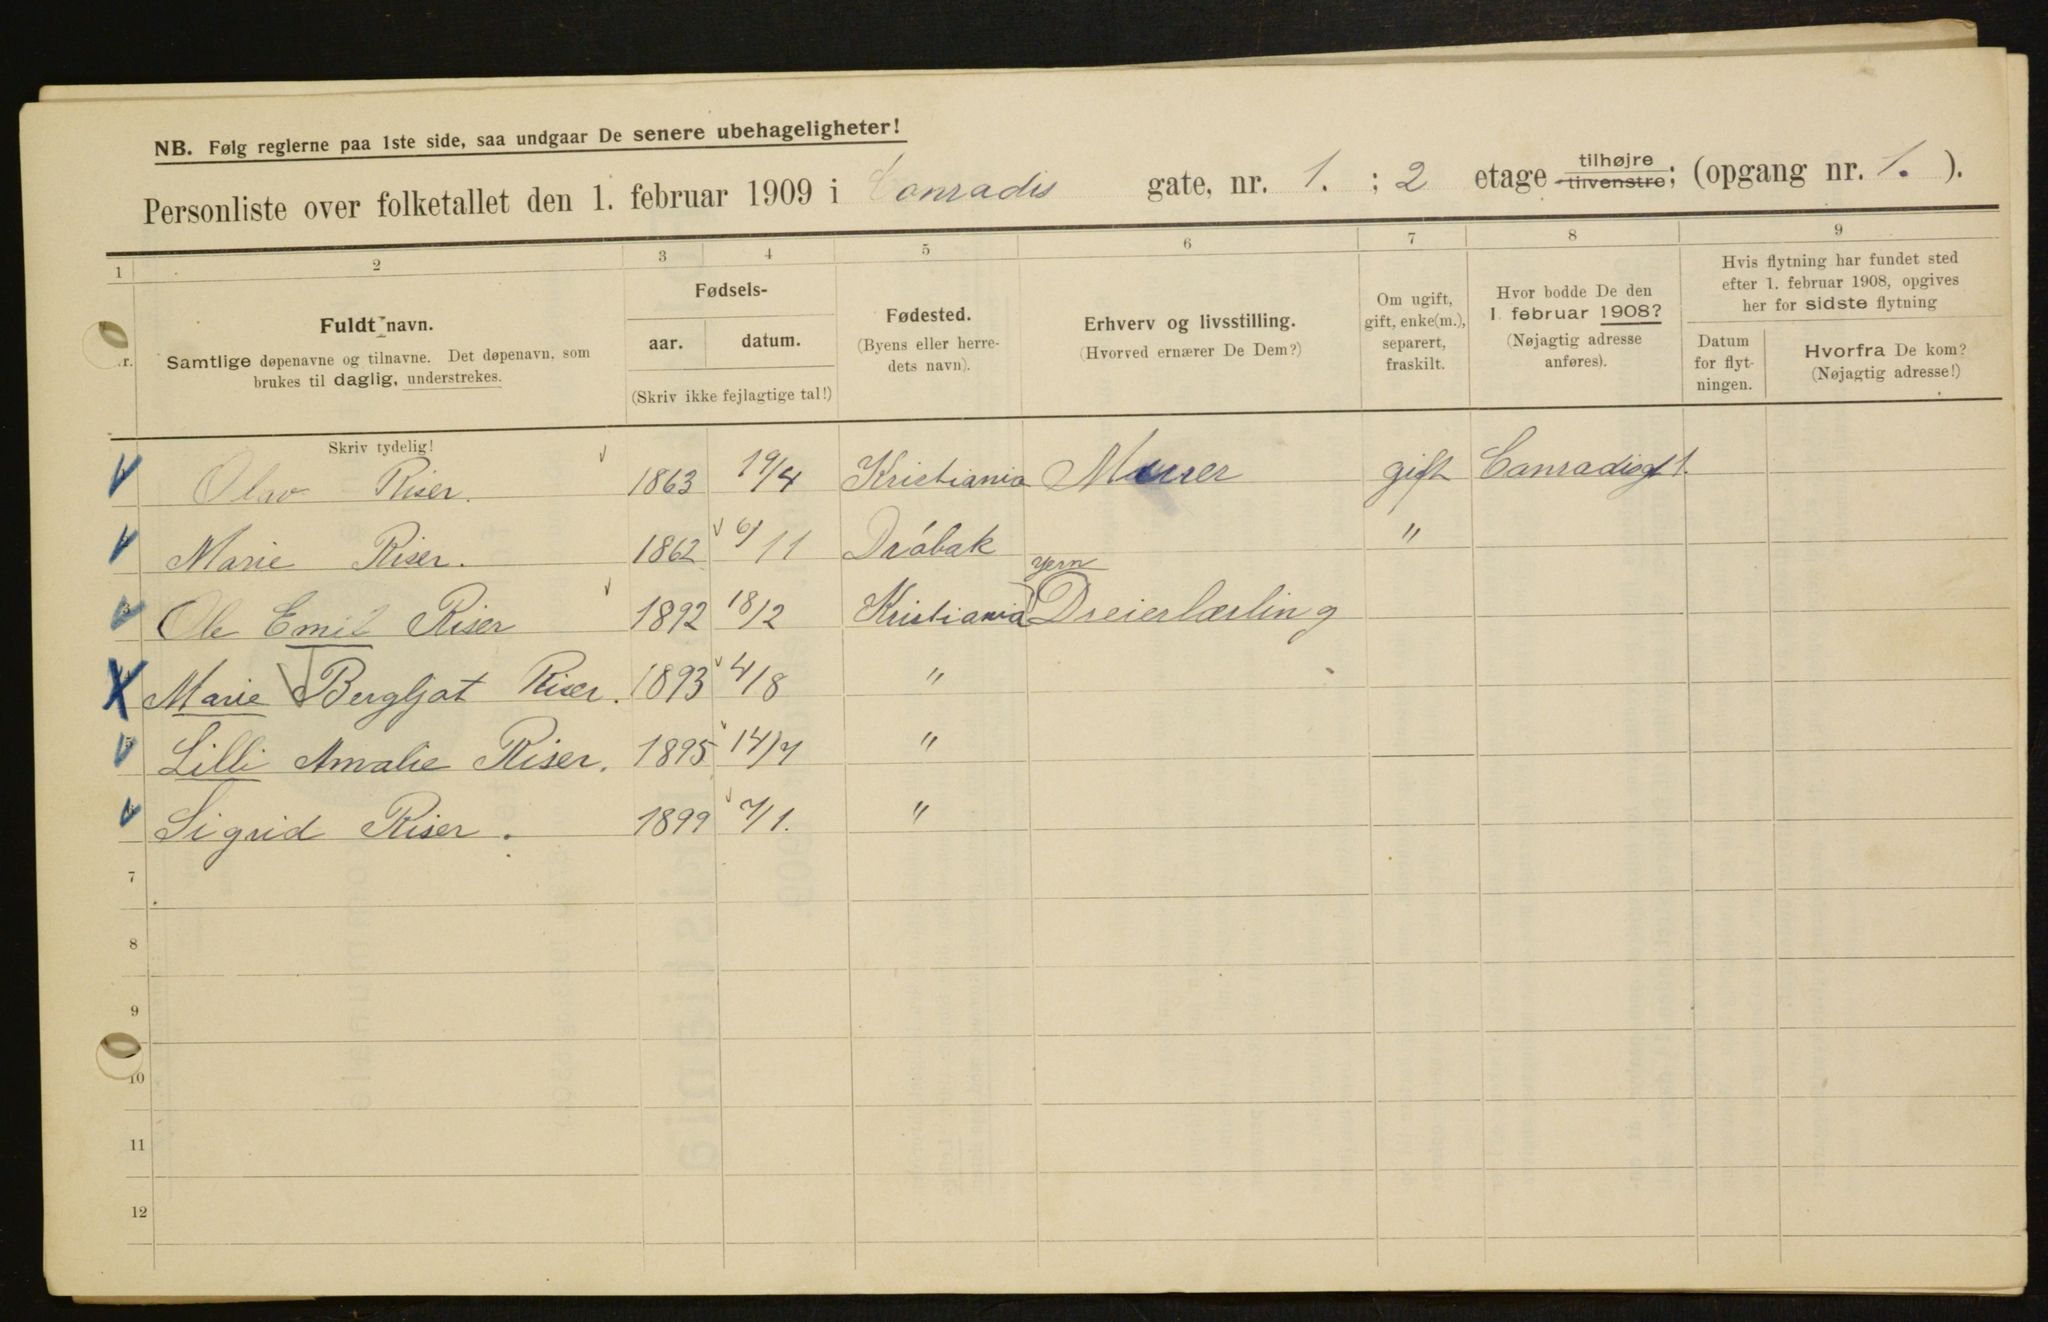 NB. Følg reglerne paa 1ste side, saa undgaar De senere ubehageligheter!
Personliste over folketallet den 1. februar 1909 i Conradis gate, nr. 1. ; 2 etage tilhøjre tilvenstre; (opgang nr. 1. ).
1 2 3 4 5 6 7 8 9
Nr.
Fuldt navn.
Samtlige døpenavne og tilnavne. Det døpenavn, som
brukes til daglig, understrekes.
Fødsels-
aar. datum.
(Skriv ikke fejlagtige tal!)
Fødested.
(Byens eller herre-
dets navn).
Erhverv og livsstilling.
(Hvorved ernærer De Dem?)
Om ugift,
gift, enke(m.),
separert,
fraskilt.
Hvor bodde De den
1. februar 1908?
(Nøjagtig adresse
anføres).
Hvis flytning har fundet sted
efter 1. februar 1908, opgives
her for sidste flytning
Datum
for flyt-
ningen.
Hvorfra De kom?
(Nøjagtig adresse!)
Skriv tydelig!
Olav Riser. 1863 19/4 Kristiania Murer gift Conradisgt 1.
Marie Riser. 1862 6/11 Drøbak "
3 Ole Emil Riser 1892 18/2 Kristiania Jern Dreierlærling
Marie Bergljot Riser. 1893 4/8 "
5 Lilli Amalie Riser. 1895 14/7 "
Sigrid Riser. 1899 7/1. "
7
8
9
10
11
12